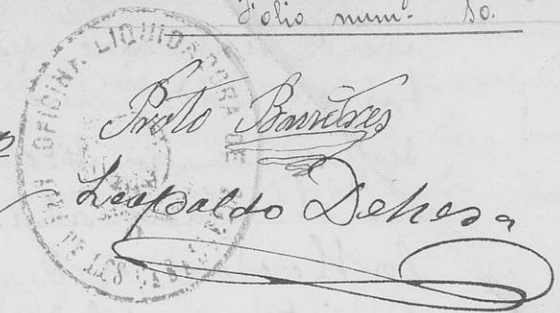 Folio num. 10.
OFICINA LIQUIDADORA DE
Proto Barreres
Leopoldo Dehesa